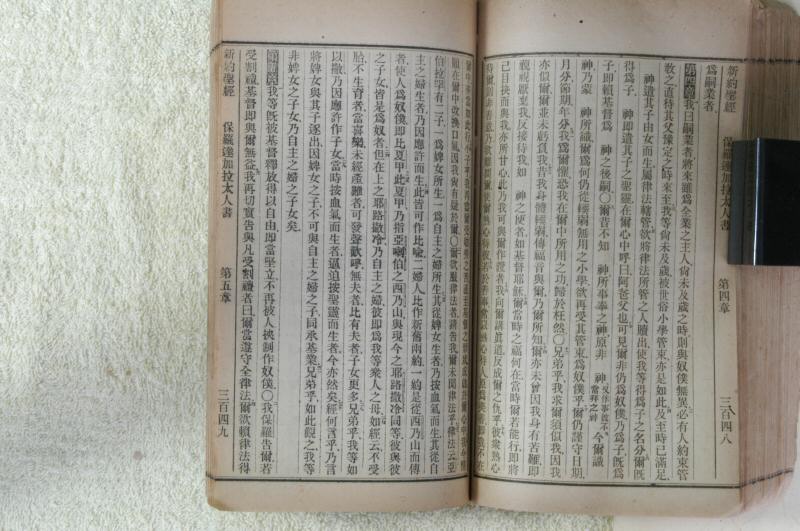 新約聖經 保羅達加拉太人書 第四章 三百四八
爲嗣業者
第四章我曰嗣業者將來雖爲全業之主人尙未及歲之時則與奴僕無異必有人約束管
敎之直待其父豫定之時來至我等尙未及歲被世俗小學管束亦是如此及至時已滿足
神遣其子由女而生屬律法轄管欲將律法所管之人贖出使我等得爲子之名分爾旣
得爲子 神卽遣其子之聖靈在爾心中呼曰阿爸父也可見爾非仍爲奴僕乃爲子旣爲
子卽賴基督爲 神之後嗣〇爾昔不知 神所事奉之神原非 神 今爾識
神乃蒙 神所識爾爲何仍從
月分節期年分我爲爾懼恐我在爾中所用之功歸於枉然〇兄弟乎我求爾須似我因我
亦似爾爾並未虧負我昔我身體輭弱傳福音與爾乃爾所知爾亦未曾因我身有苦難卽
藐視厭棄我反接待我如 神之使者如基督耶穌爾當時之福何在當時爾若能行卽將
己目抉而與我亦所甘心此乃我可與爾作證者我向爾講眞道反成爾之仇乎彼衆熱心
願在爾中改換口氣因我尙有疑於爾〇爾欲服律法者請告我爾未聞律法乎律法云亞
伯拉罕有二子一爲婢女所生一爲自主之婦所生其從婢女生者乃按血氣而生其從自
主之婦生者乃因應許而生此皆可作比喻二婦人比作新舊兩約一約是從西乃山而傳
者使人爲奴僕卽比夏甲此夏甲乃指亞喇伯之西乃山與現今之耶路撒冷同等彼與彼
之子女皆是爲奴者但在上之耶路撒冷乃自主之婦彼卽爲我等衆人之母如經云不受
胎不生育者當喜樂未經產難者可發聲歡呼無夫者比有夫者子女更多兄弟乎我等如
以撒乃因應許作子女當時按血氣而生者逼迫按聖靈而生者今亦然矣經何言乎乃言
將婢女與其子逐出因婢女之子不可與自主之婦之子同承基業兄弟乎如此觀之我等
非婢女之子女乃自主之婦之子女矣
第五章我等旣被基督釋放得以自由卽當堅立不再被人挾制作奴僕〇我保羅告爾若
受割禮基督卽與爾無益我再切實告與凡受割禮者曰爾當遵守全律法爾欲賴律法得
新約聖經 保羅達加拉太人書 第五章 三百四九